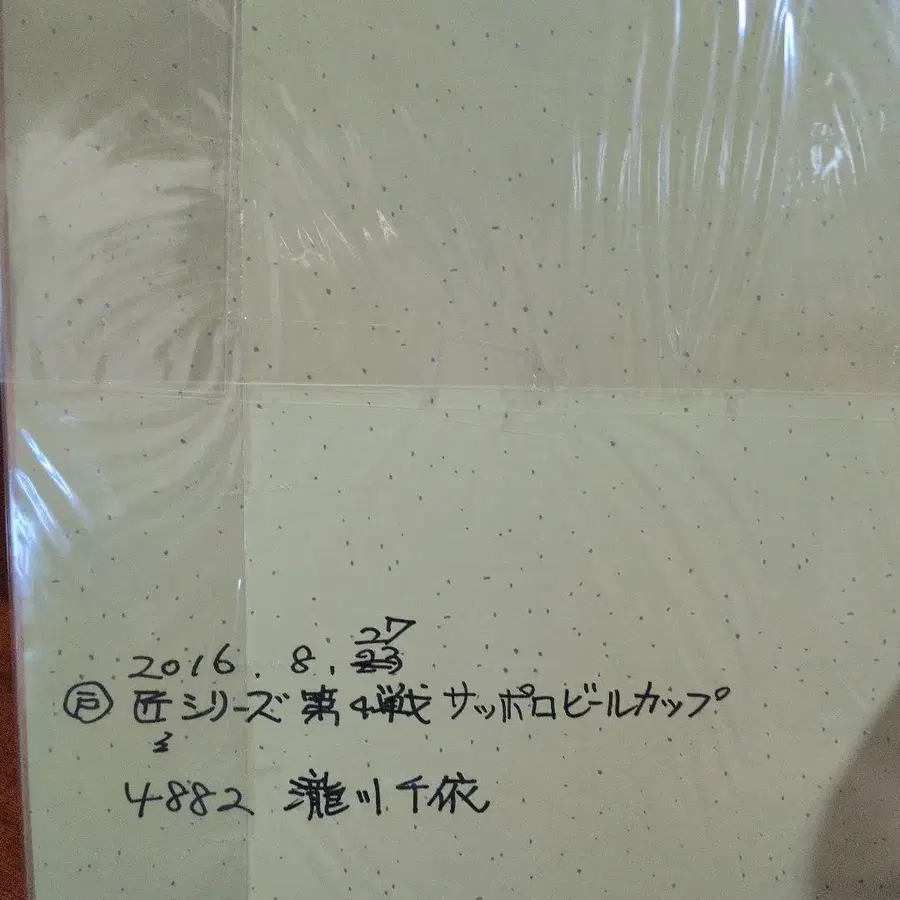 2016.8.27
㊣ 匠シリーズ第4戦サッポロビールカップ
4882 瀧川千依